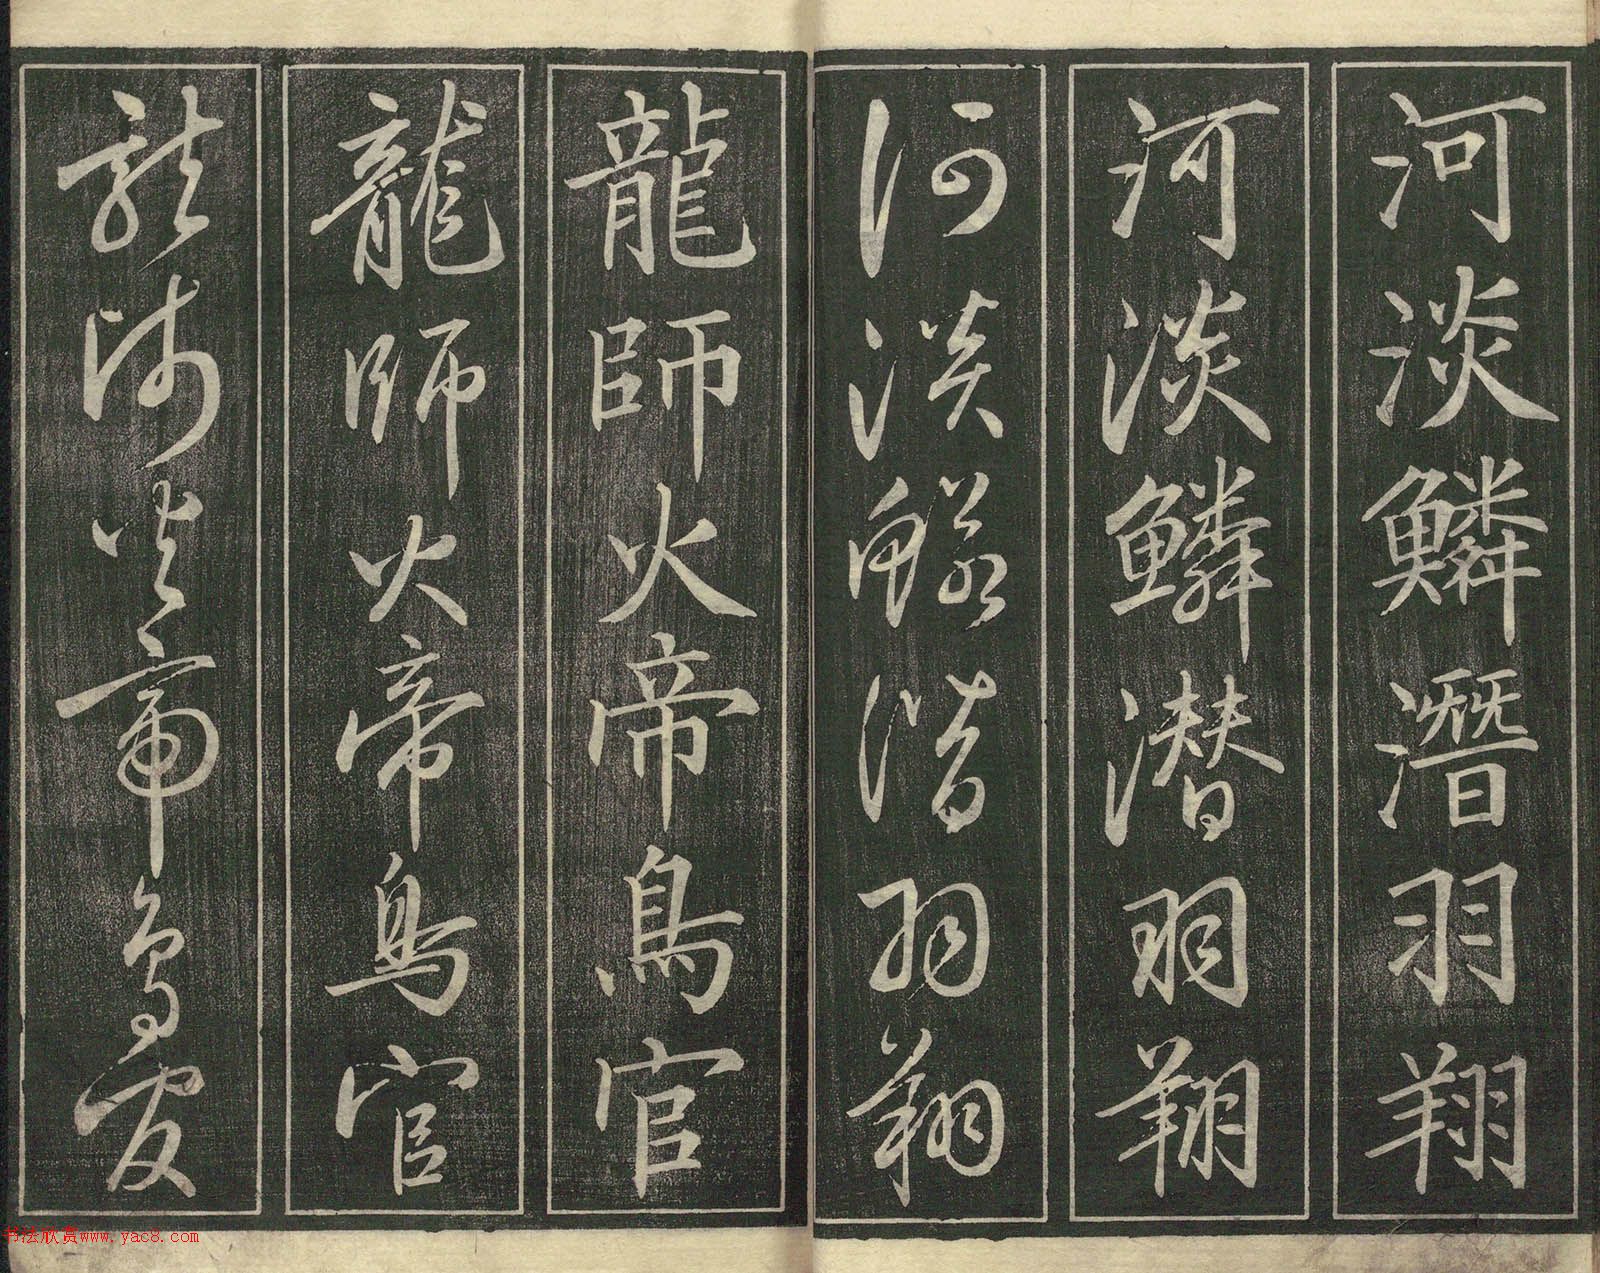 河淡鱗潛羽翔
河淡鱗潛羽翔
河淡鱗潛羽翔
龍師火帝鳥官
龍師火帝鳥官
龍師火帝鳥官
书法欣赏www.yac8.com